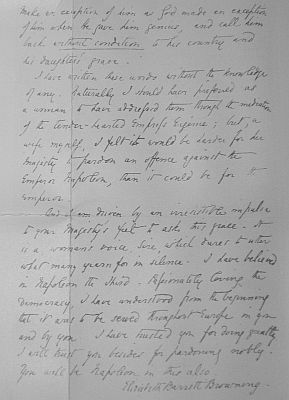 Make an exception of him as God made an exception
of him when he gave him genius, and call him
back without condition to his country and
his daughter's grave.
I have written these words without the knowledge
of any. Naturally I should have preferred as
a woman to have addressed them through the mediation
of the tender-hearted Empress Eugénie; but, a
wife myself, I felt it would be harder for her
Majesty to pardon an offence against the
Emperor Napoleon, than it could be for the
Emperor.
And I am driven by an irresistible impulse
to your Majesty's feet to ask this grace. It
is a woman's voice, Sire, which dares to utter
what many yearn for in silence. I have believed
in Napoleon the Third. Passionately loving the
democracy, I have understood from the beginning
that it was to be served throughout Europe in you
and by you. I have trusted you for doing greatly.
I will trust you besides for pardoning nobly.
You will be Napoleon in this also.
Elizabeth Barrett Browning.